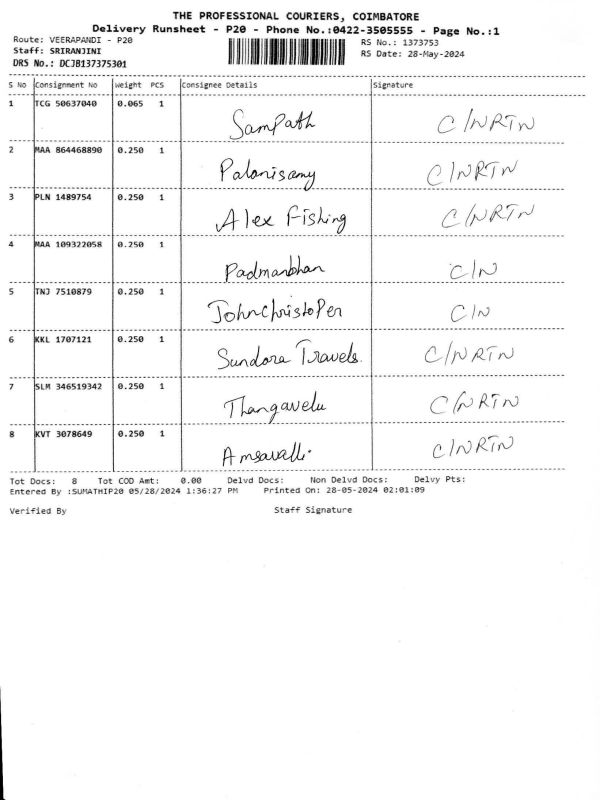 THE PROFESSIONAL COURIERS, COIMBATORE
Delivery Runsheet - P20 - Phone No.:0422-3505555 - Page No.:1
Route: VEERAPANDI - P20 RS No.: 1373753
Staff: SRIRANJINI RS Date: 28-May-2024
DRS No.: DCJB137375301
S No Consignment No Weight PCS Consignee Details Signature
1 TCG 50637040 0.065 1 Sampath C/NRTN
2 MAA 864468890 0.250 1 Palanisamy C/NRTN
3 PLN 1489754 0.250 1 Alex Fishing C/NRTN
4 MAA 109322058 0.250 1 Padmanbhan C/N
5 TNJ 7510879 0.250 1 JohnChristoper C/N
6 KKL 1707121 0.250 1 Sundora Travels. C/NRTN
7 SLM 346519342 0.250 1 Thangavelu C/NRTN
8 KVT 3078649 0.250 1 Amsavalli. C/NRTN
Tot Docs: 8 Tot COD Amt: 0.00 Delvd Docs: Non Delvd Docs: Delvy Pts:
Entered By :SUMATHIP20 05/28/2024 1:36:27 PM Printed On: 28-05-2024 02:01:09
Verified By Staff Signature